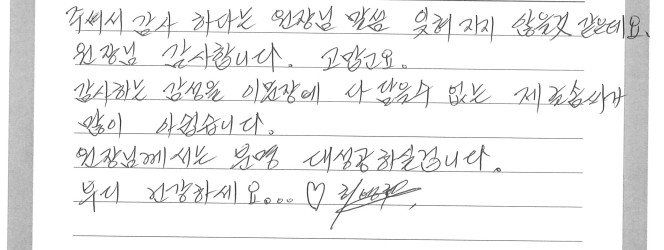 주셔서 감사 하다는 원장님 말씀 잊혀 지지 않을것 같은데요.
원장님 감사합니다. 고맙고요.
감사하는 감성을 이편장에 다 담을수 없는 제 글솜씨가
많이 아쉽습니다.
원장님께서는 분명 대성공하실겁니다.
부디 건강하세요... ♡